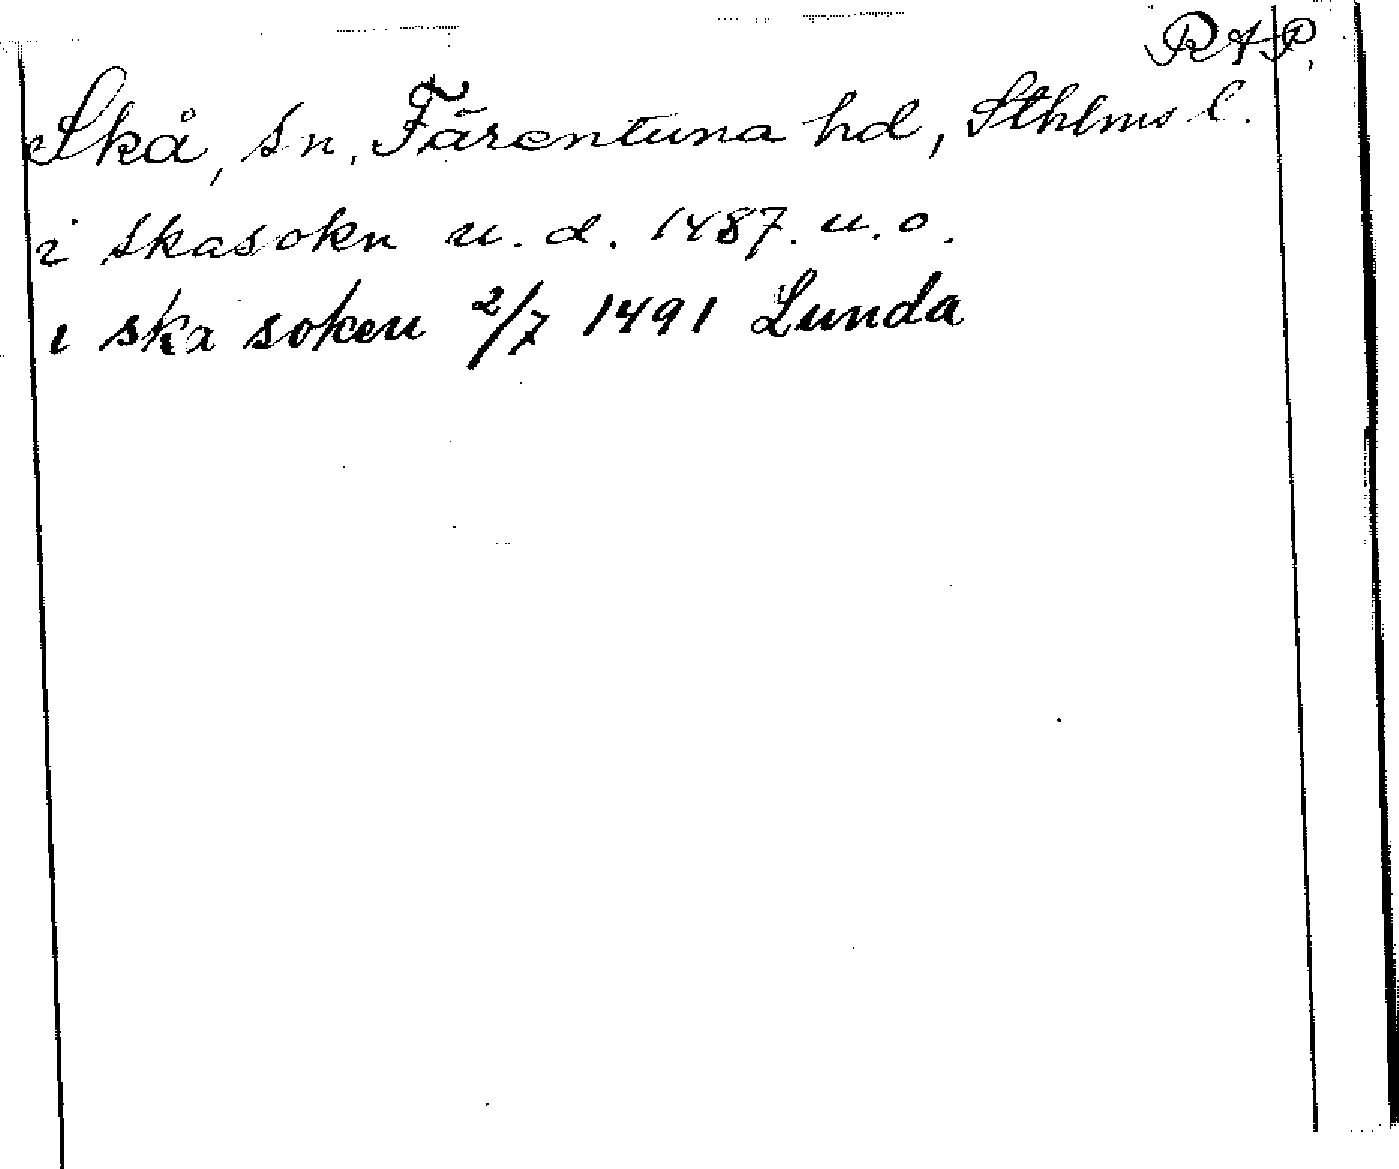 RAP.
Skå, sn, Färentuna hd, Sthlms l.
i skasokn u. d. 1487. u. o.
i ska soken 2/7 1491 Lunda